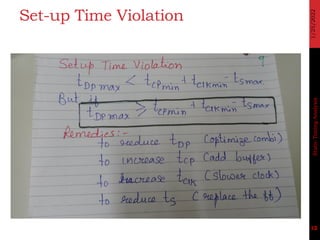 Set-up Time Violation
1/25/2022
Setup Time Violation
9
tDP max < tCP min + tClk min - tSmax
But if
tDP max ≥ tCP min + tClk min - tSmax
Remedies:-
to reduce tDP (optimize combi)
to increase tCP (add buffers)
to increase tClk (slower clock)
to reduce tS (replace the ff)
Static Timing Analysis